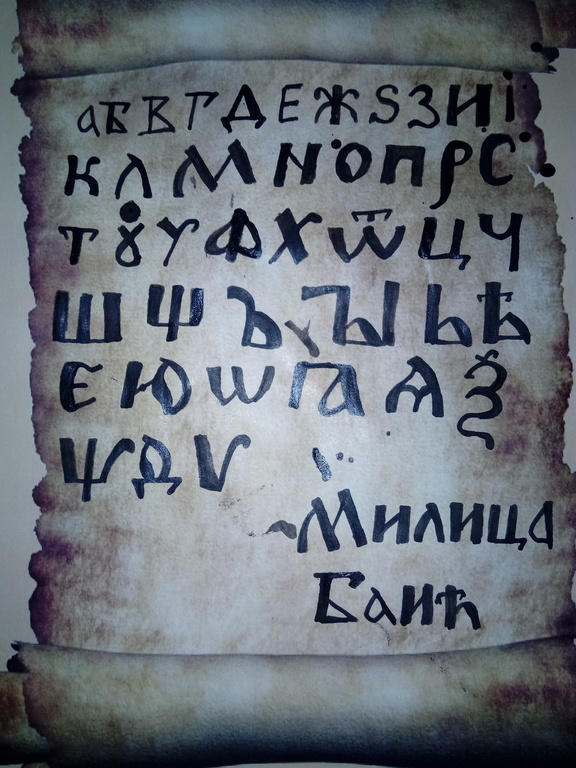 а Б В Г Д Е Ж Ѕ З И і
К Л М Н О П Р С
Т Ꙋ У Ф Х Ѿ Ц Ч
Ш Ѱ Ъ Ꙑ Ь Ѣ
Є Ю Ѡ Ꙗ Ѧ Ѯ
Ѱ Д Ѵ
Милица
Баић